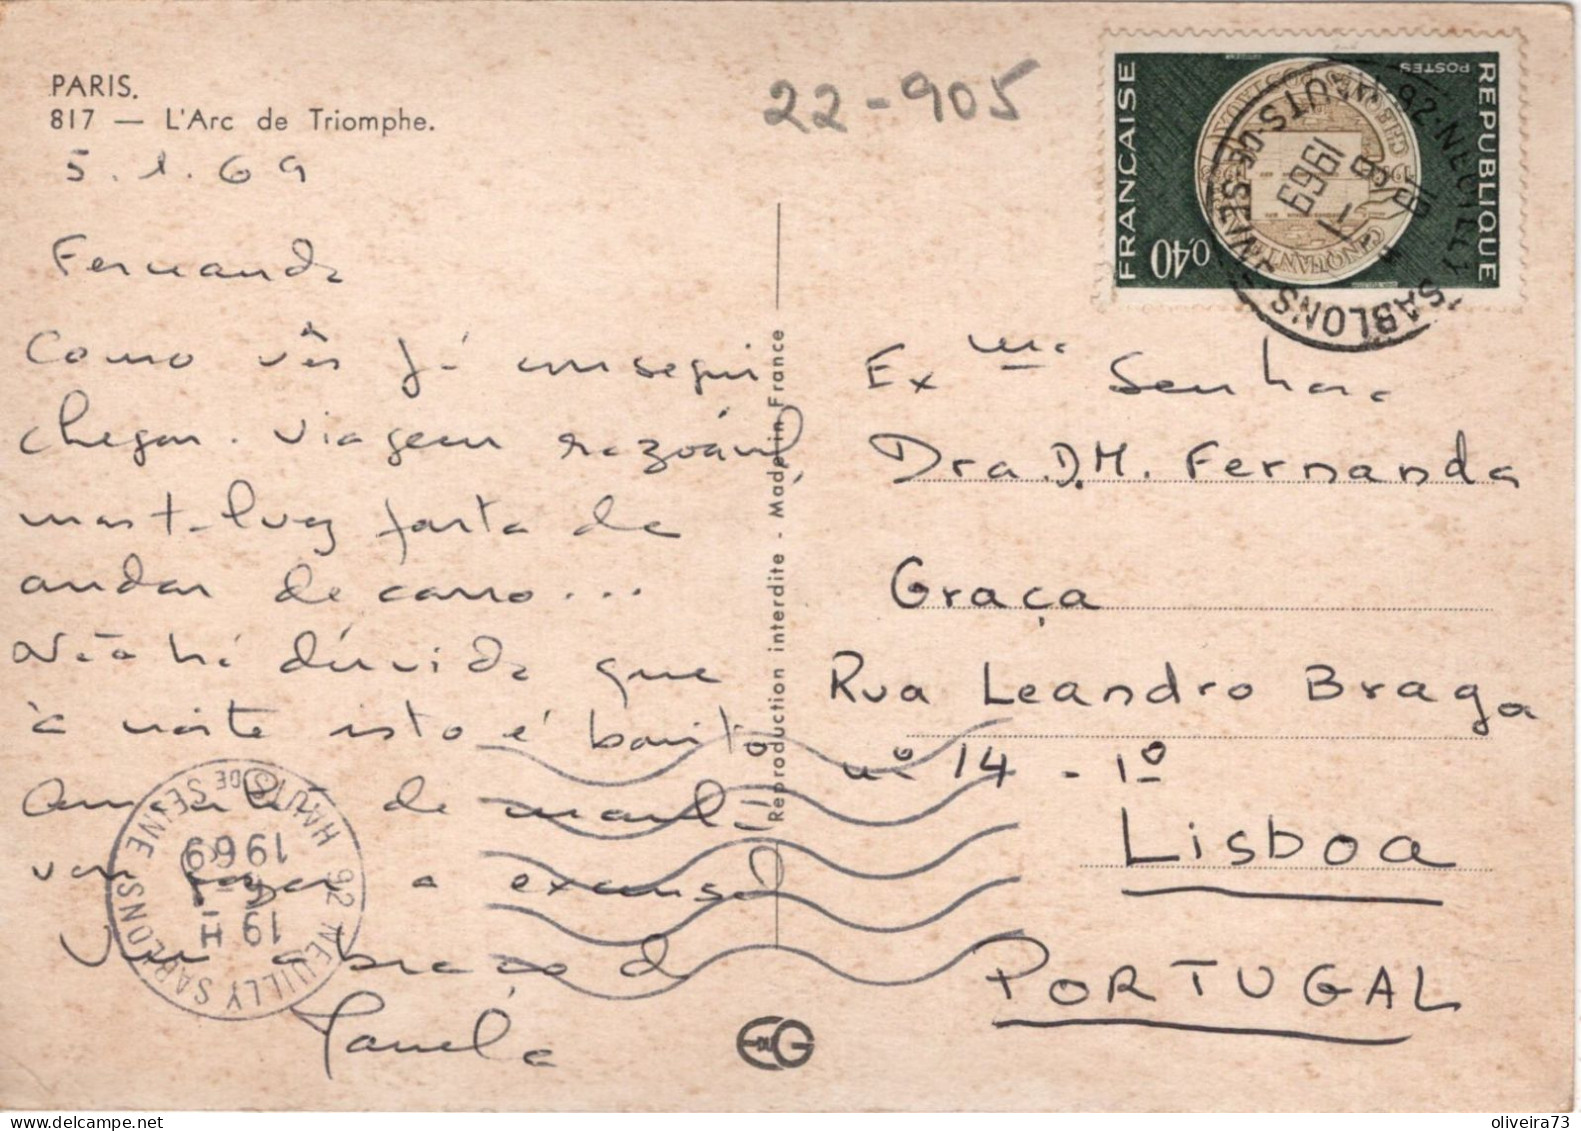 PARIS.
817 — L'Arc de Triomphe.
5.1.69
22-905
REPUBLIQUE
FRANÇAISE
POSTES
0,40
92-NEUILLY SABLONS
HAUTS-DE-SEINE
1969
Fernanda
Como vês já consegui
chegar. Viagem razoável,
mas talvez farta de
andar de carro...
Não há dúvida que
à noite isto é bonito!
de
vou fazer a excursão
Um abraço da
Reproduction interdite - Made in France
Exma Senhora
Dra. D. M. Fernanda
Graça
Rua Leandro Braga
nº 14 - 1º
Lisboa
PORTUGAL
92 NEUILLY SABLONS
HAUTS DE SEINE
19 H
1969
E DU G
oliveira73